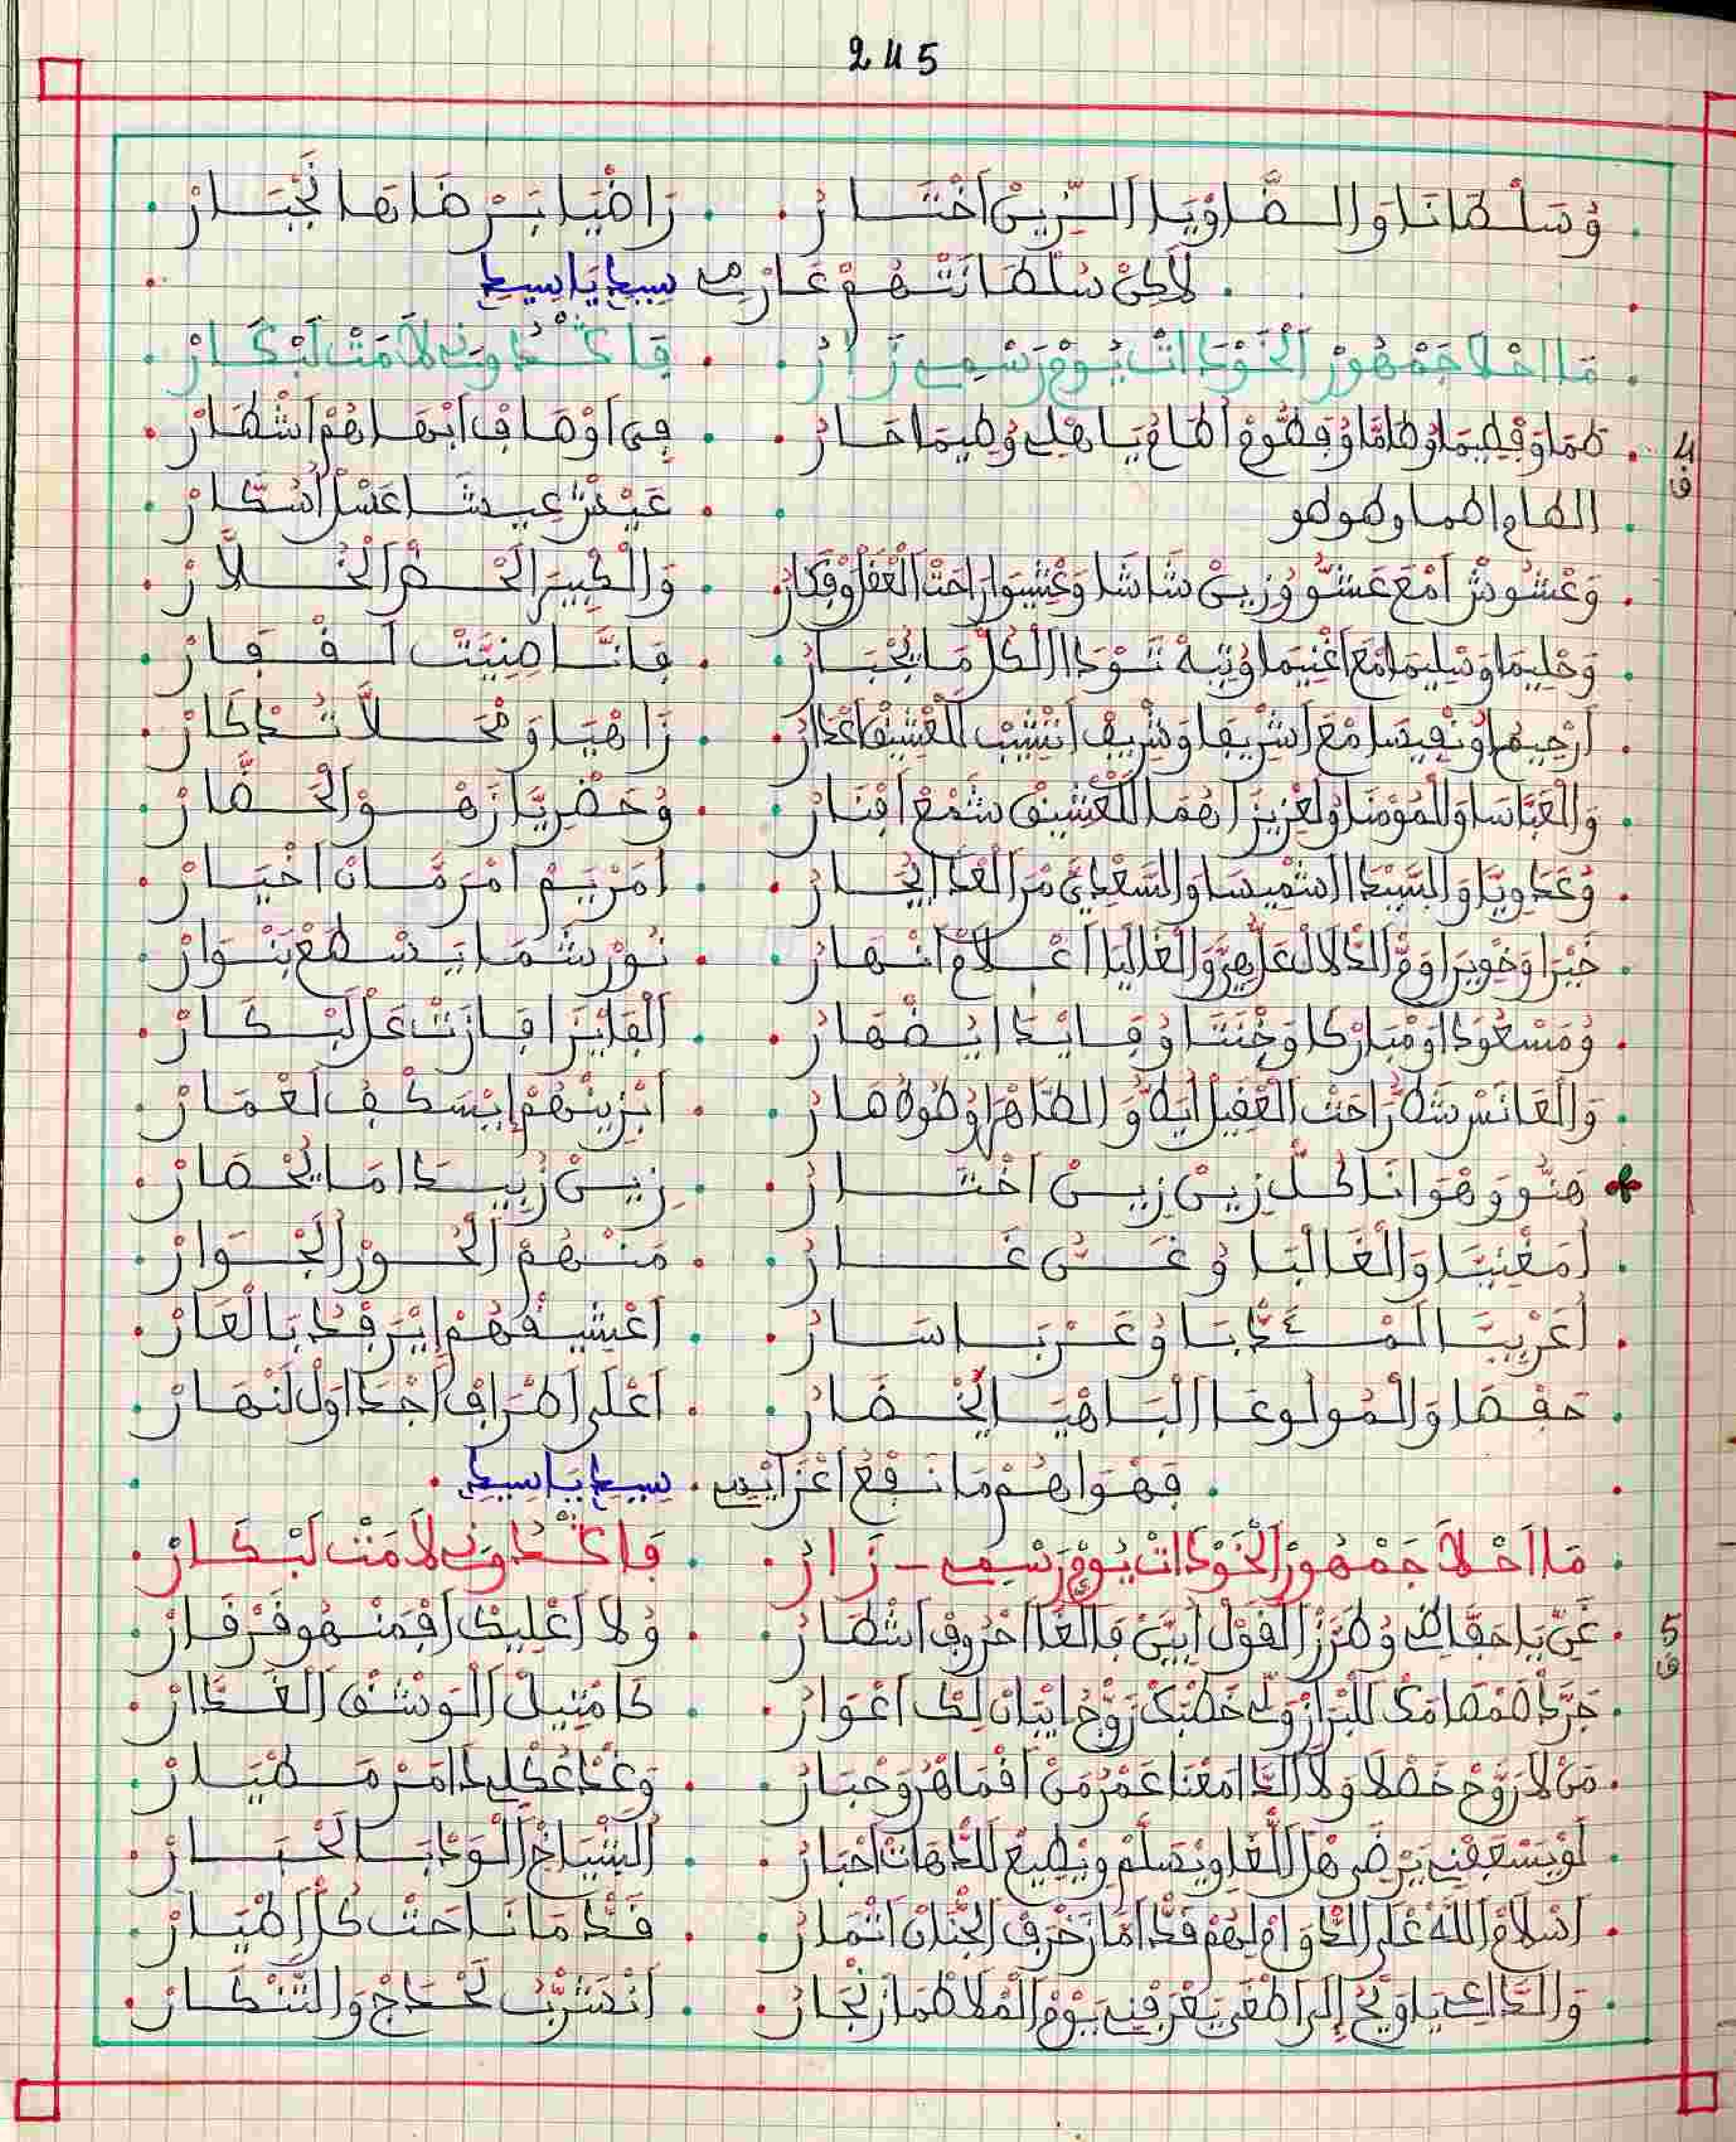 245
وُسَلْطَانَا وَالضَّاوْيَا الزِّينْ اَخْتَارْ رَاضْيَا بَرْضَاتْهَا نَجْبَارْ
لَاكِنْ سُلْطَانَتْهُمْ عَارْمِ سِيدِ يَا سِيدِ
مَا احْلَا جَمْهُورْ الْخَوْدَاتْ يُومْ رَسْمِي زَارْ فَاكْدُونِي لَامَتْ لَبْكَارْ
4 ق
طَمَا وَفْطِيمَا وُطَامَّا وُفَطُّومْ الطَامُ يَاهْلِي وُطِيمَا حَارْ فِي اَوْصَافْ اَبْهَاهُمْ اَشْطَارْ
الطام اطما وطوطو عَيْشْ عِيشَا عَسْلْ اُسُكَّارْ
وَعْشُوشْ اَمْعَ عَشُّو وُزِينْ شَاشَا وَعْشِيوَا رَاحْتْ الْعَقْلْ وُفْكَارْ وَالْكْبِيرَ الْخَضْرْ الْخُلَّارْ
وَحْلِيمَا وَسْلِيمَا اَمْعَ اغْنِيمَا وُتِيهْ تَوْدَا الْكُلّْ مَا يُجْبَارْ فَاتَّا ضِيَّتْ لَقْفَارْ
اَرْحِيمُ اُونْفِيسَا مْعَ اَشْرِيفَا وَشْرِيفْ اَنْشِيبْ الْعْشِيقْ اعْدَارْ زَاهْيَا وَمْحَلَّا تُدْكَارْ
وَالْعَبَّاسَا وَالْمُوْمْنَا وُلَعْزِيزَا هُمَا الْلَعْشِيقْ شَمْعْ اَفْنَارْ وُخَضْرِيَّا زَهْوْ الْحَضَّارْ
وُعَدْوِيَّا وَالسِّيدَا اشْمِيسَا وَالسَّعْدِيَّ مْرَ الْغْدَا الِحَارْ اَمَرْيَمْ اَمْرَمَّانْ اَخْيَارْ
خَيْرَا وَخْوِيرَا وَمّْ الدْلَالْ عَلْهِيرُّ وَالْغَالْيَا اَعْلَامْ انْهَارْ نُورْ شَمَا يَسْطَعْ بَنْوَارْ
وُمَسْعُودَا وَمْبَارْكَا وَخْنَتَا وُفَايْدَا ايْضْهَارْ الْفَايْزَا فَازَتْ عَلْ لَبْكَارْ
وَالْعَانَسْ شَطَّ رَاحَتْ الْعْقِيلْ اَيَطُّو وَالطَّاهْرَا وُطُوطَهَارْ اَبْزِينْهُمْ اِيْسَكْفْ لَعْمَارْ
هَنُّو وَهْوَانَا كُلّْ زِينْ زِينْ اَخْتَارْ زِينْ زُبِيدَا مَا يُحْصَارْ
اَمَغْنِيَا وَالْغَالْبَا وُغَنّى غَارْ مَنْهُمْ الْحُورْ الْجَوَارْ
اَغْرِيبَا الْمْدْبَا وُعَرْبَا سَارْ اَعْشِيقْهُمْ اِيَرْفْدْ بَالْعَارْ
حَفْصَا وَالْمُولُوعَا الْبَاهْيَا لَخْضَارْ اَعْلَى اَطْرَافْ اجْدَاوَلْ لَنْهَارْ
فَهْوَاهُمْ مَا نَفْعُ اعْزَايْمِ سِيدِ يَا سِيدِ
مَا اَحْلَا جَمْهُورْ الْخَوْدَاتْ يُومْ رَسْمِي زَارْ فَاكْدُونِي لَامَتْ لَبْكَارْ
5 ق
غَنِّ يَا حَفَّاظِي وُطَرْزْ الْقَوْلْ اَبْيَنْ فَالْغَا احْرُوفْ اَشْطَارْ وُلَا اعْلِيكْ اَفْمَنْهُو فَرْفَارْ
جَرَّدْ صَمْصَامَكْ لَلْبْرَازْ وُلِّي خَطْبَكْ زَوُّجُ ايْبَانْ لِكْ اَعْوَارْ كَامْتِيلْ الْوَشْقْ الْغَدَّارْ
مَنْ لَا رَوَّحْ خَصْلَا وَلَا الدَّا مَعْنَا عَمْرُ مَنْ اَقْمَاهْرُ وَجْبَارْ وَعْدْ عُكْلِي دَا مَرْ مَطْيَارْ
لَوْ يَسْعَفْنِي يَرْضَى هَلْ الْلْغَا وِيْسَلَّمْ وِيْطِيعْ لَلدُّهَاتْ اَحْبَارْ اَلشْيَاخْ الْوَدْبَا لَحْبَارْ
اَسْلَامْ اللَّهْ عْلَى الدْوَامْ لِهُمْ قَدّْ اَمَا زَخْرَفْ الْجْنَانْ اَتْمَارْ قَدّْ مَا نَاحَتْ كُلّْ اَطْيَارْ
وَالدَّاعِي يَا وِيْحُ اِلَى اَطْغَى يَعْرَفْنِي يَوْمْ الْمْلَاطْمَا زَنْجَارْ اَنْشَرّْبُ لَحْدَاجْ وَالتَّنْكَارْ